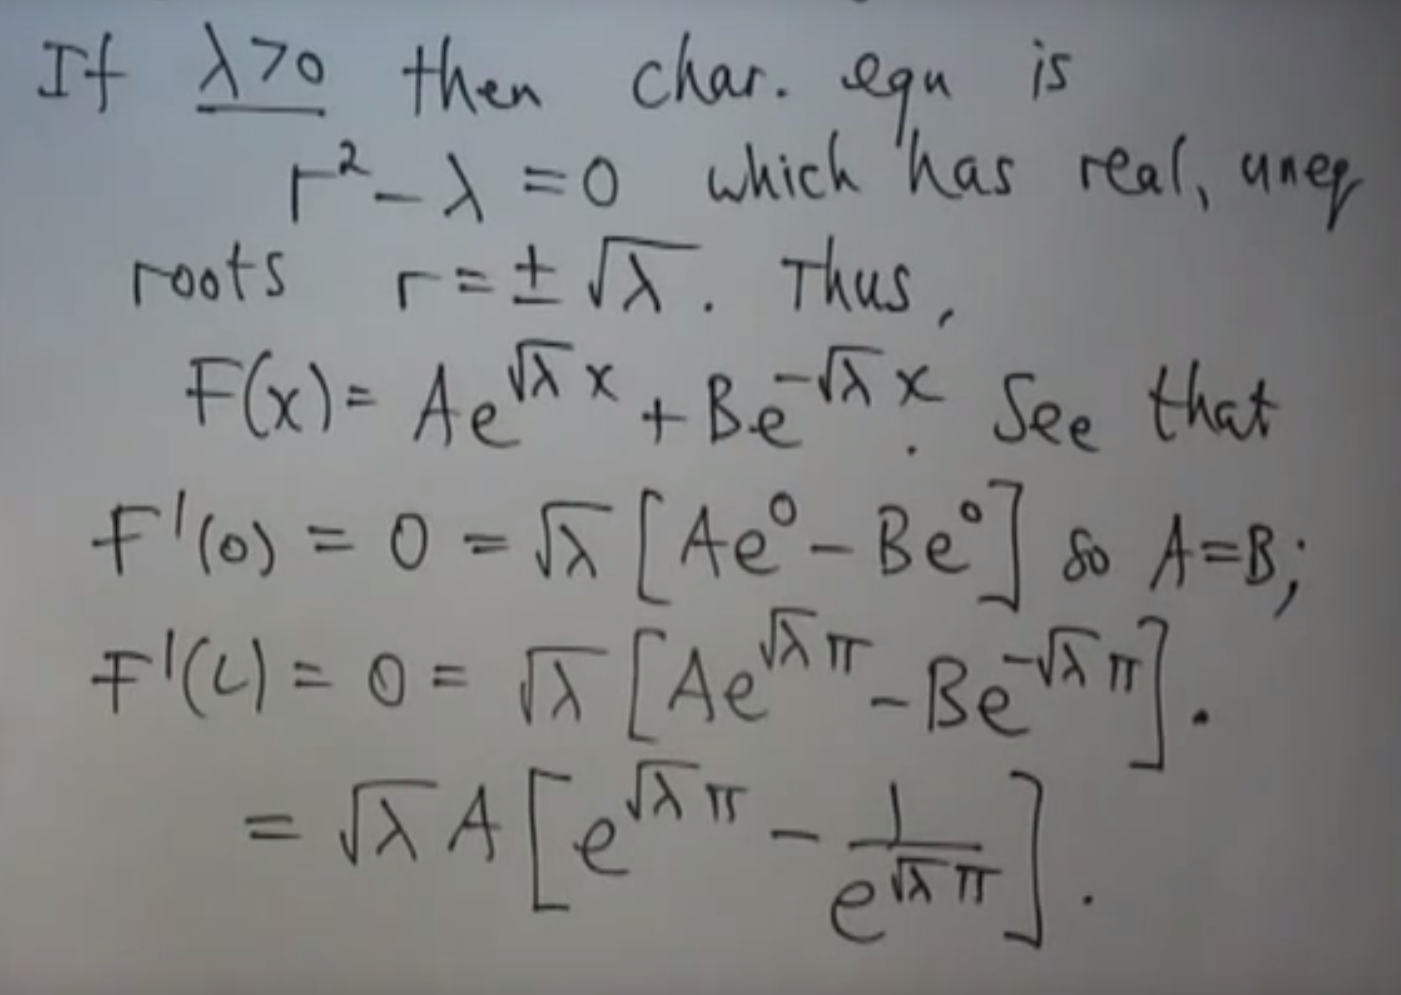 If λ>0 then char. equ is
r² - λ = 0 which has real, uneq
roots r = ± √λ. Thus,
F(x) = Ae^{√λ x} + Be^{-√λ x}. See that
F'(0) = 0 = √λ [Ae⁰ - Be⁰] so A=B;
F'(L) = 0 = √λ [Ae^{√λ π} - Be^{-√λ π}].
= √λ A [e^{√λ π} - 1/e^{√λ π}].